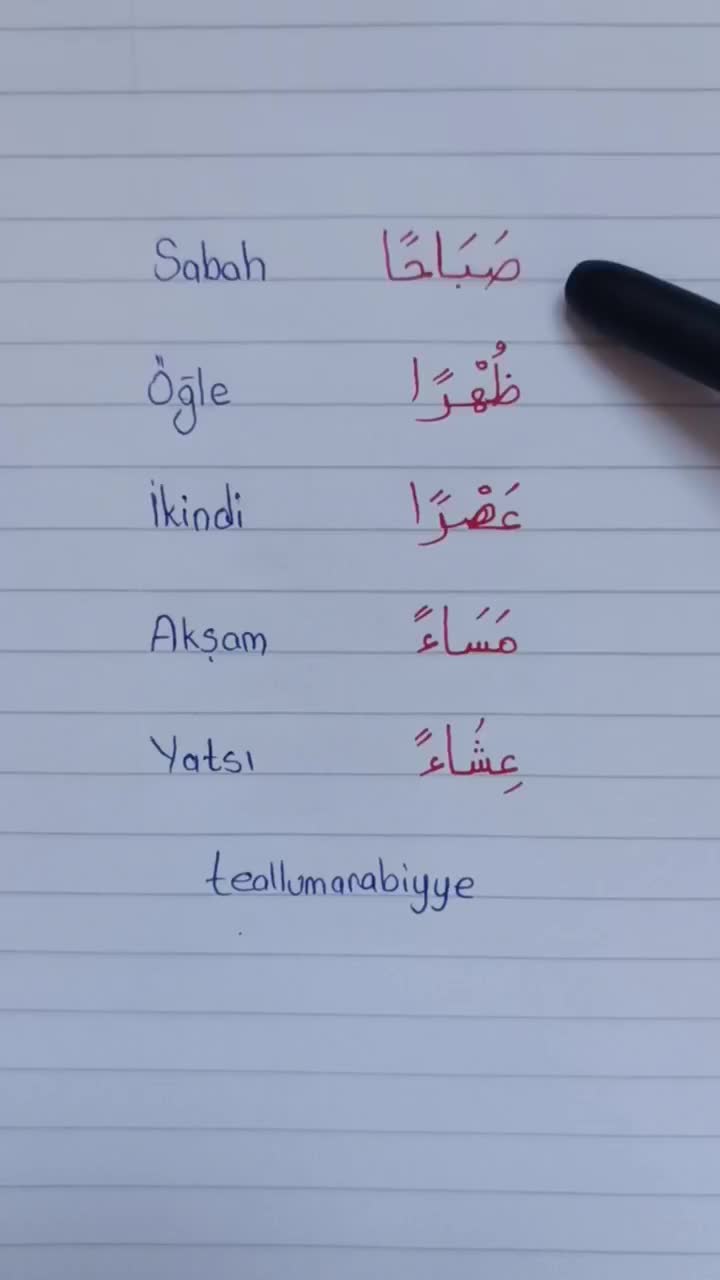 Sabah صَبَاحًا
Öğle ظُهْرًا
İkindi عَصْرًا
Akşam مَسَاءً
Yatsı عِشَاءً
teallumarabiyye